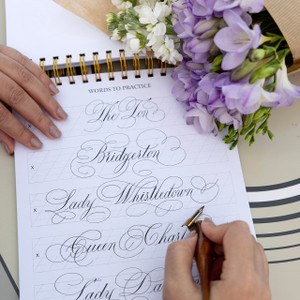 WORDS TO PRACTICE
The Ton
x Bridgerton
x Lady Whistledown
x Queen Charl
Lady Da